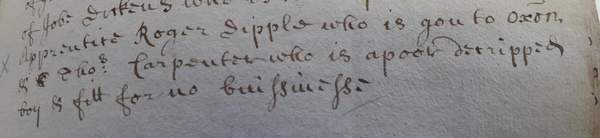 of Jobe Dickens
x Apprentice Roger Dipple who is gon to Oxōn
& Tho: Carpenter who is a poor decripped
boy & fitt for no buissinesse